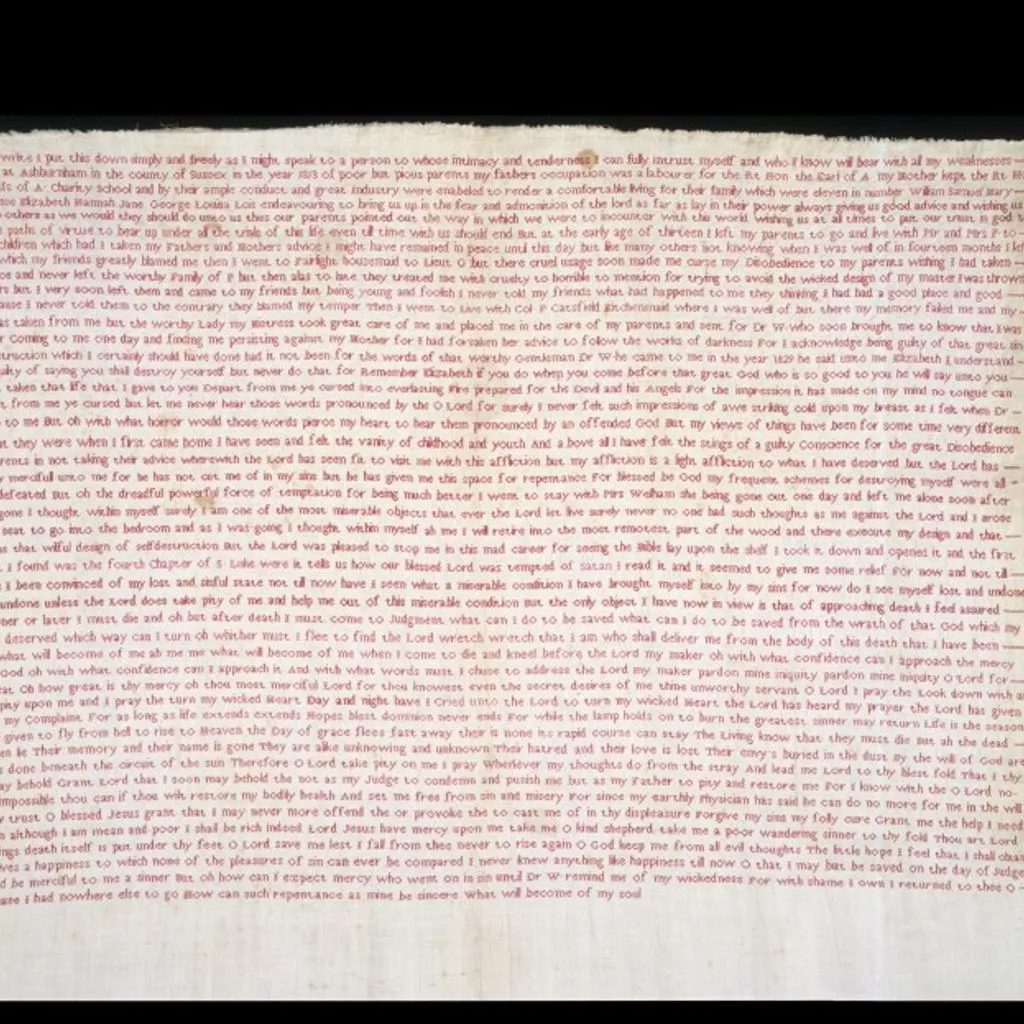 write I put this down simply and freely as I might speak to a person to whose intimacy and tenderness I can fully intrust myself and who I know will bear with all my weaknesses
at Ashburnham in the county of Sussex in the year 1813 of poor but pious parents my fathers occupation was a labourer for the Rt Hon the Earl of A my Mother kept the Rt Ho
of A Charity School and by their ample conduct and great industry were enabeled to render a comfortable living for their family which were eleven in number William Samuel Mary
Elizabeth Hannah Jane George Louisa Lois endeavouring to bring us up in the fear and admonition of the lord as far as lay in their power always giving us good advice and wishing us
others as we would they should do unto us thus our parents pointed out the way in which we were to incounter with this world wishing us at all times to put our trust in god t
paths of virtue to bear up under all the trials of this life even till time with us should end But at the early age of thirteen I left my parents to go and live with Mr and Mrs P to
children which had I taken my Fathers and Mothers advice I might have remained in peace until this day but like many others not knowing when I was well of in fourteen months I left
which my friends greatly blamed me then I went to Fairlight housemaid to Lieut G but there cruel usage soon made me curse my Disobedience to my parents wishing I had taken
and never left the worthy Family of P but then alas to late they treated me with cruelty to horrible to mention for trying to avoid the wicked design of my master I was thrown
but I very soon left them and came to my friends but being young and foolish I never told my friends what had happened to me they thinking I had had a good place and good
I never told them to the contrary they blamed my temper Then I went to live with Col P Catsfield kitchenmaid where I was well of but there my memory failed me and my
taken from me but the worthy Lady my Mistress took great care of me and placed me in the care of my parents and sent for Dr W who soon brought me to know that I was
Coming to me one day and finding me persisting against my Mother for I had forsaken her advice to follow the works of darkness For I acknowledge being guilty of that great sin
which I certainly should have done had it not been for the words of that worthy Gentleman Dr W he came to me in the year 1829 he said unto me Elizabeth I understand
of saying you shall destroy yourself but never do that for Remember Elizabeth if you do when you come before that great God who is so good to you he will say unto you
taken that life that I gave to you Depart from me ye cursed into everlasting Fire prepared for the Devil and his Angels For the impression it has made on my mind no tongue can
from me ye cursed but let me never hear those words pronounced by the O Lord for surely I never felt such impressions of awe striking cold upon my breast as I felt when Dr
to me But oh with what horror would those words pierce my heart to hear them pronounced by an offended God But my views of things have been for some time very different
they were when I first came home I have seen and felt the vanity of childhood and youth And a bove all I have felt the stings of a guilty Conscience for the great Disobedience
in not taking their advice wherewith the Lord has seen fit to visit me with this affliction but my affliction is a light affliction to what I have deserved but the Lord has
merciful unto me for he has not cut me of in my sins but he has given me this space for repentance For blessed be God my frequent schemes for destroying myself were all
defeated But oh the dreadful powerful force of temptation for being much better I went to stay with Mrs Welham she being gone out one day and left me alone soon after
gone I thought within myself surely I am one of the most miserable objects that ever the Lord let live surely never no one had such thoughts as me against the Lord and I arose
seat to go into the bedroom and as I was going I thought within myself ah me I will retire into the most remotest part of the wood and there execute my design and that
that wilful design of selfdestruction But the Lord was pleased to stop me in this mad career for seeing the Bible lay upon the shelf I took it down and opened it and the first
I found was the fourth Chapter of S Luke were it tells us how our blessed Lord was tempted of satan I read it and it seemed to give me some relief For now and not till
I been convinced of my lost and sinful state not till now have I seen what a miserable condition I have brought myself into by my sins for now do I see myself lost and undone
undone unless the Lord does take pity of me and help me out of this miserable condition But the only object I have now in view is that of approaching death I feel assured
or later I must die and oh but after death I must come to Judgment what can I do to be saved what can I do to be saved from the wrath of that God which my
deserved which way can I turn oh whither must I flee to find the Lord wretch wretch that I am who shall deliver me from the body of this death that I have been
what will become of me ah me me what will become of me when I come to die and kneel before the Lord my maker oh with what confidence can I approach the mercy
God oh with what confidence can I approach it And with what words must I chuse to address the Lord my maker pardon mine iniquity pardon mine iniquity O Lord for
Oh how great is thy mercy oh thou most merciful Lord for thou knowest even the secret desires of me thine unworthy servant O Lord I pray the Look down with a
pity upon me and I pray the turn my wicked Heart Day and night have I Cried unto the Lord to turn my wicked Heart the Lord has heard my prayer the Lord has given
my Complaint For as long as life extends extends Hopes blest dominion never ends For while the lamp holds on to burn the greatest sinner may return Life is the season
given to fly from hell to rise to Heaven the Day of grace flees fast away their is none its rapid course can stay The Living know that they must die But ah the dead
lie Their memory and their name is gone They are alike unknowing and unknown Their hatred and their love is lost Their envy's buried in the dust By the will of God are
done beneath the circuit of the sun Therefore O Lord take pity on me I pray Whenever my thoughts do from the stray And lead me Lord to thy blest fold That I thy
behold Grant Lord that I soon may behold the not as my Judge to condemn and punish me but as my Father to pity and restore me For I know with the O Lord no
impossible thou can if thou wilt restore my bodily health And set me free from sin and misery For since my earthly Physician has said he can do no more for me in the will
trust O blessed Jesus grant that I may never more offend the or provoke the to cast me of in thy displeasure Forgive my sins my folly cure Grant me the help I need
although I am mean and poor I shall be rich indeed Lord Jesus have mercy upon me take me O kind shepherd take me a poor wandering sinner to thy fold Thou art Lord
death itself is put under thy feet O Lord save me lest I fall from thee never to rise again O God keep me from all evil thoughts The little hope I feel that I shall obtain
a happiness to which none of the pleasures of sin can ever be compared I never knew anything like happiness till now O that I may but be saved on the day of Judge
be merciful to me a sinner But oh how can I expect mercy who went on in sin until Dr W remind me of my wickedness For with shame I own I returned to thee O
I had nowhere else to go How can such repentance as mine be sincere What will become of my soul